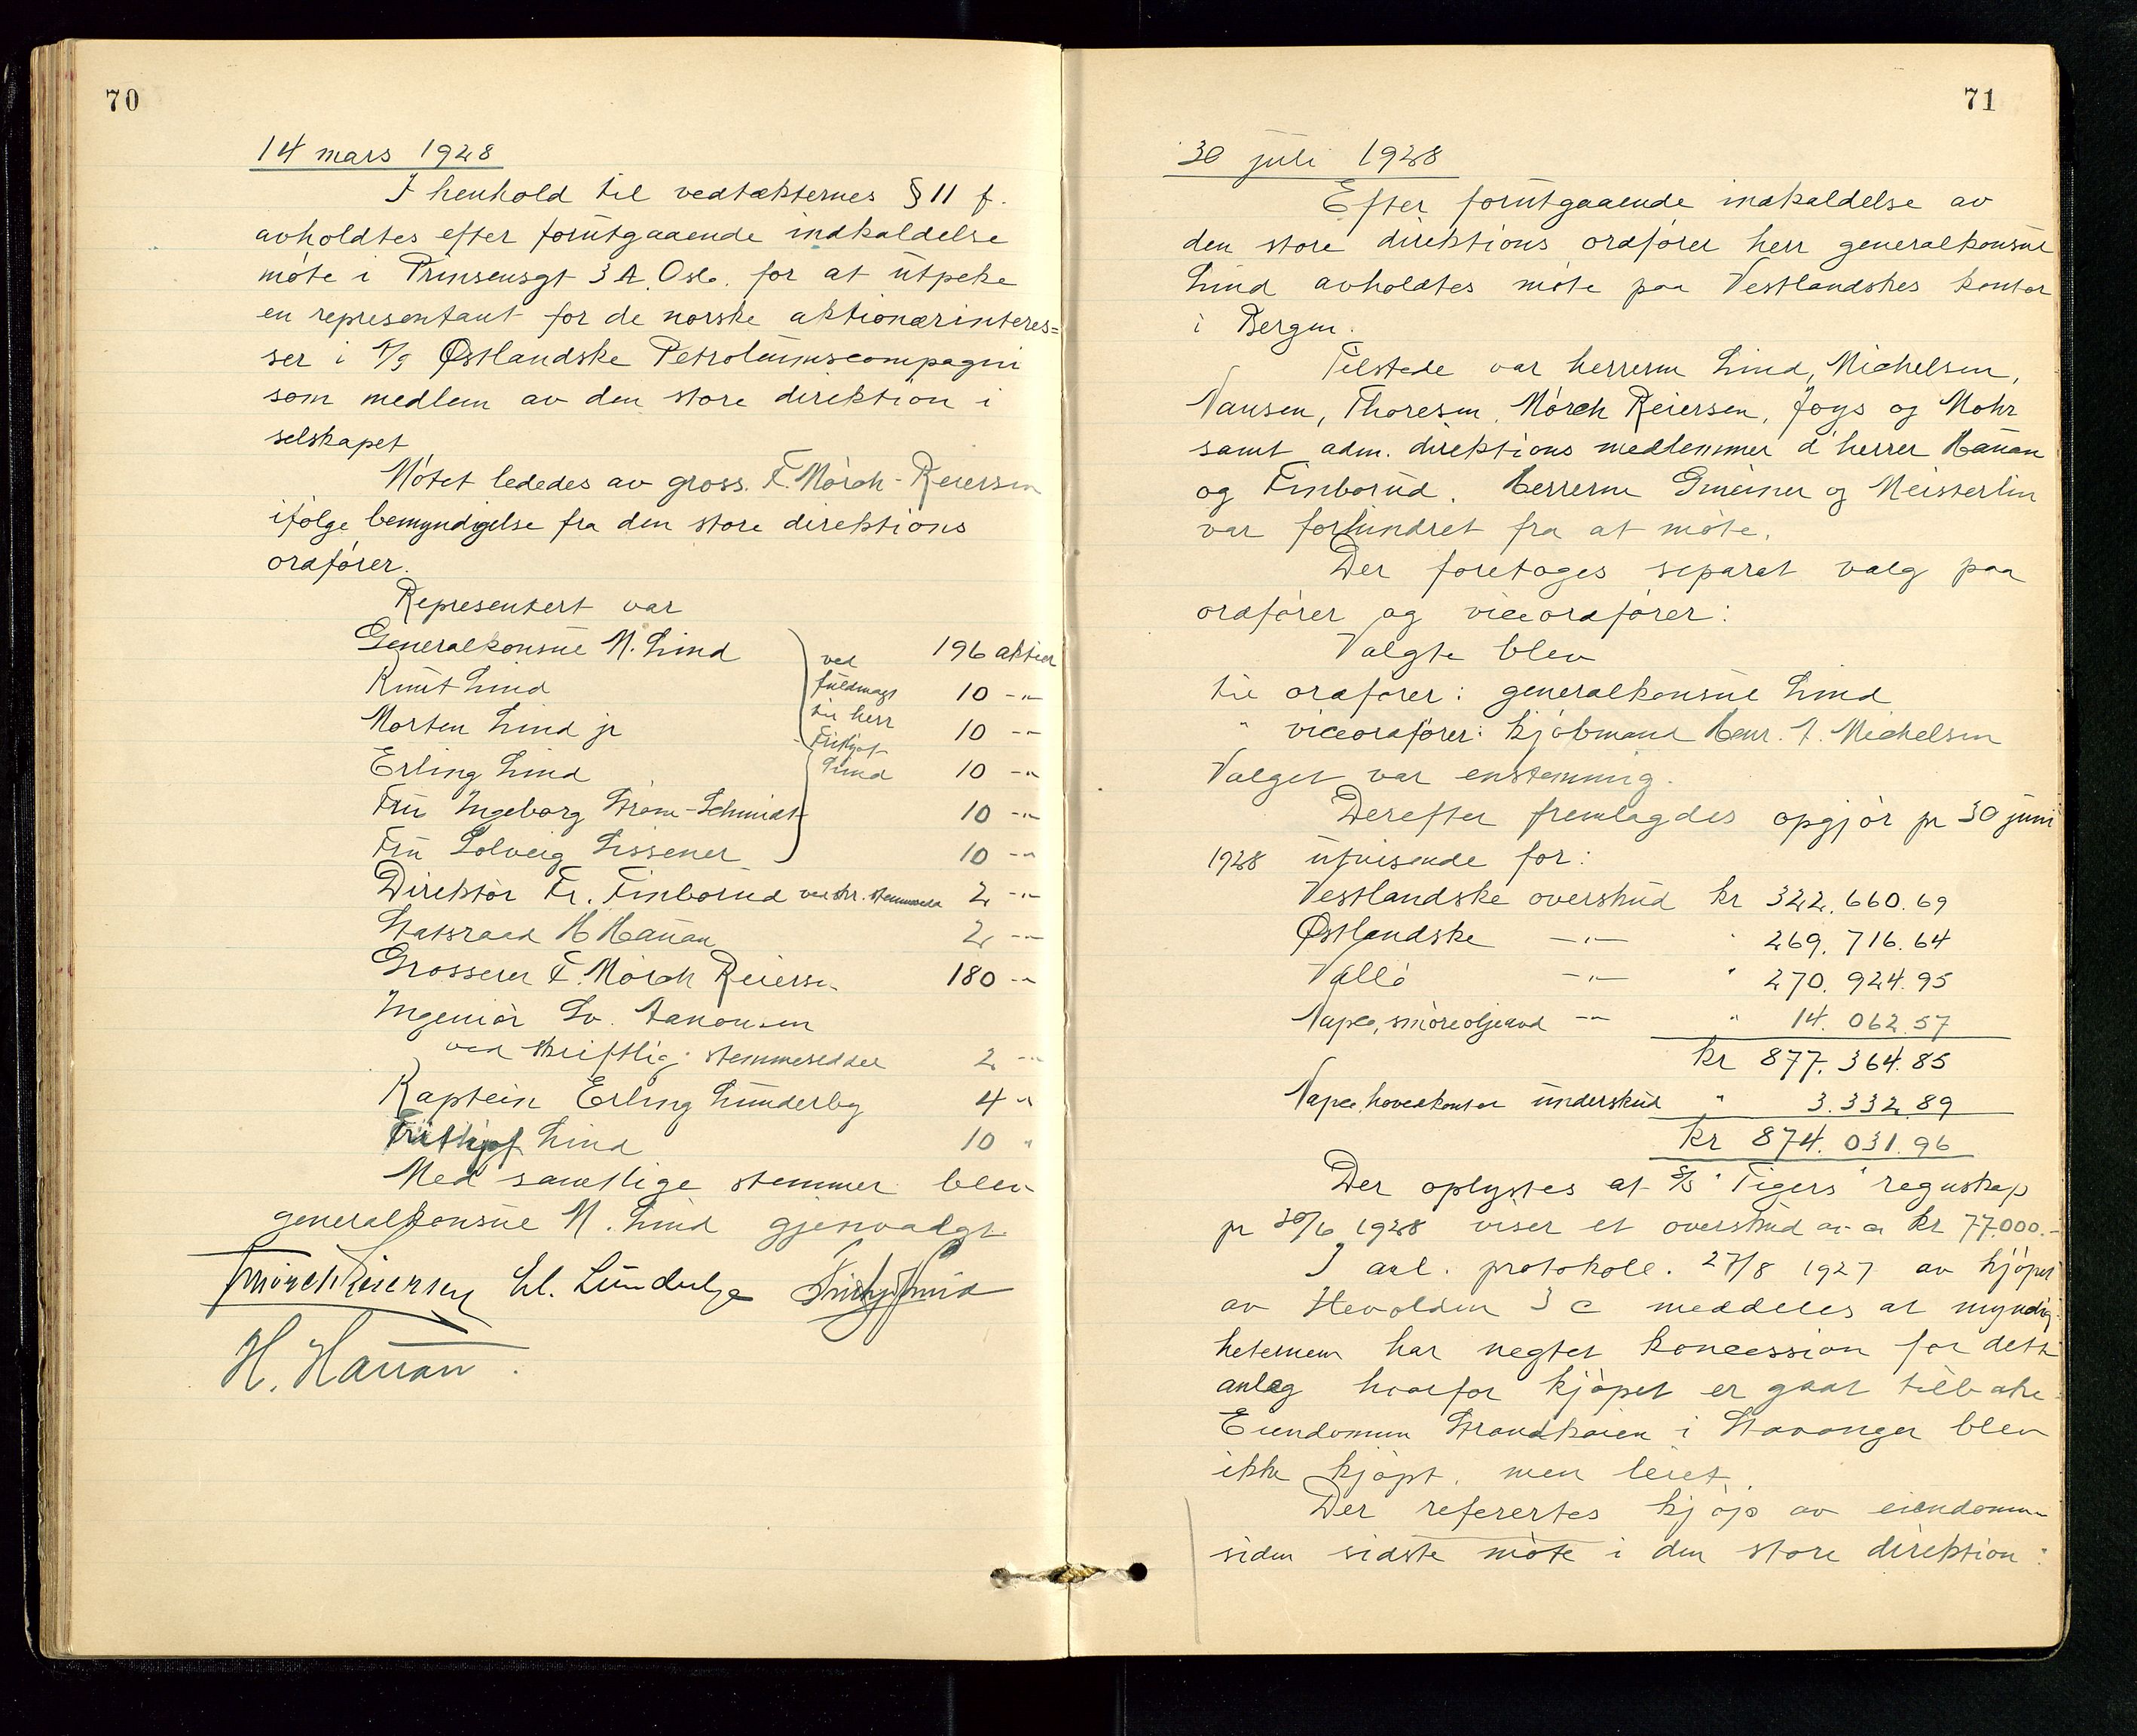 70
14 mars 1928
I henhold til vedtækternes § 11 f.
avholdtes efter forutgaaende indkaldelse
møte i Prinsensgt 3 A, Oslo, for at utpeke
en representant for de norske aktionærinteres=
ser i A/S Østlandske Petroleumscompagni
som medlem av den store direktion i
selskapet
Møtet lededes av gross. F. Mørch-Reiersen
ifølge bemyndigelse fra den store direktions
ordfører.
Representert var
Generalkonsul M. Lind ved 196 aktier
Knut Lind fuldmagt 10 -"-
Morten Lind jr til herr 10 -"-
Erling Lind Frithjof Lind 10 -"-
Fru Ingeborg Strøm-Schmidt 10 -"-
Fru Solveig Lissener 10 -"-
Direktør Fr. Finborud ved skr. stemmesed. 2 -"-
Statsraad H Hauan 2 -"-
Grosserer F. Mørch Reiersen 180 -"-
Ingeniør Sv. Aanonsen
ved skriftlig stemmeseddel 2 -"-
Kaptein Erling Lunderby 4 -"-
Frithjof Lind 10 "
Med samtlige stemmer blev
generalkonsul M. Lind gjenvalgt
F Mørch Reiersen Erl. Lunderby Frithjof Lind
H. Hauan.
71
30 juli 1928
Efter forutgaaende indkaldelse av
den store direktions ordfører herr generalkonsul
Lind avholdtes møte paa Vestlandskes kontor
i Bergen.
Tilstede var herrerne Lind, Michelsen,
Nansen, Thoresen, Mørch Reiersen, Joys og Mohr
samt adm. direktions medlemmer d'herrer Hauan
og Finborud. Herrerne Gmeiner og Meisterlin
var forhindret fra at møte.
Der foretages separat valg paa
ordfører og viceordfører:
Valgte blev
til ordfører: generalkonsul Lind
" viceordfører: kjøbmand Henr. J. Michelsen
Valget var enstemmig.
Derefter fremlagdes opgjør pr 30 juni
1928 utvisende for:
Vestlandske overskud kr 322.660.69
Østlandske -"- " 269.716.64
Vallø -"- " 270.924.95
Napco, smøreoljeavd -"- " 14.062.57
kr 877.364.85
Napco, hovedkontor underskud " 3.332.89
kr 874.031.96
Der oplystes at S/S "Tigers" regnskap
pr 30/6 1928 viser et overskud av ca kr 77.000.-
I anl. protokoll. 27/8 1927 av kjøpet
av Hevolden 3 c meddeles at myndig-
heterne har negtet koncession for dette
anlæg hvorfor kjøpet er gaat tilbake.
Eiendommen Strandkaien i Stavanger blev
ikke kjøpt, men leiet.
Der referertes kjøp av eiendomme
siden sidste møte i den store direktion: